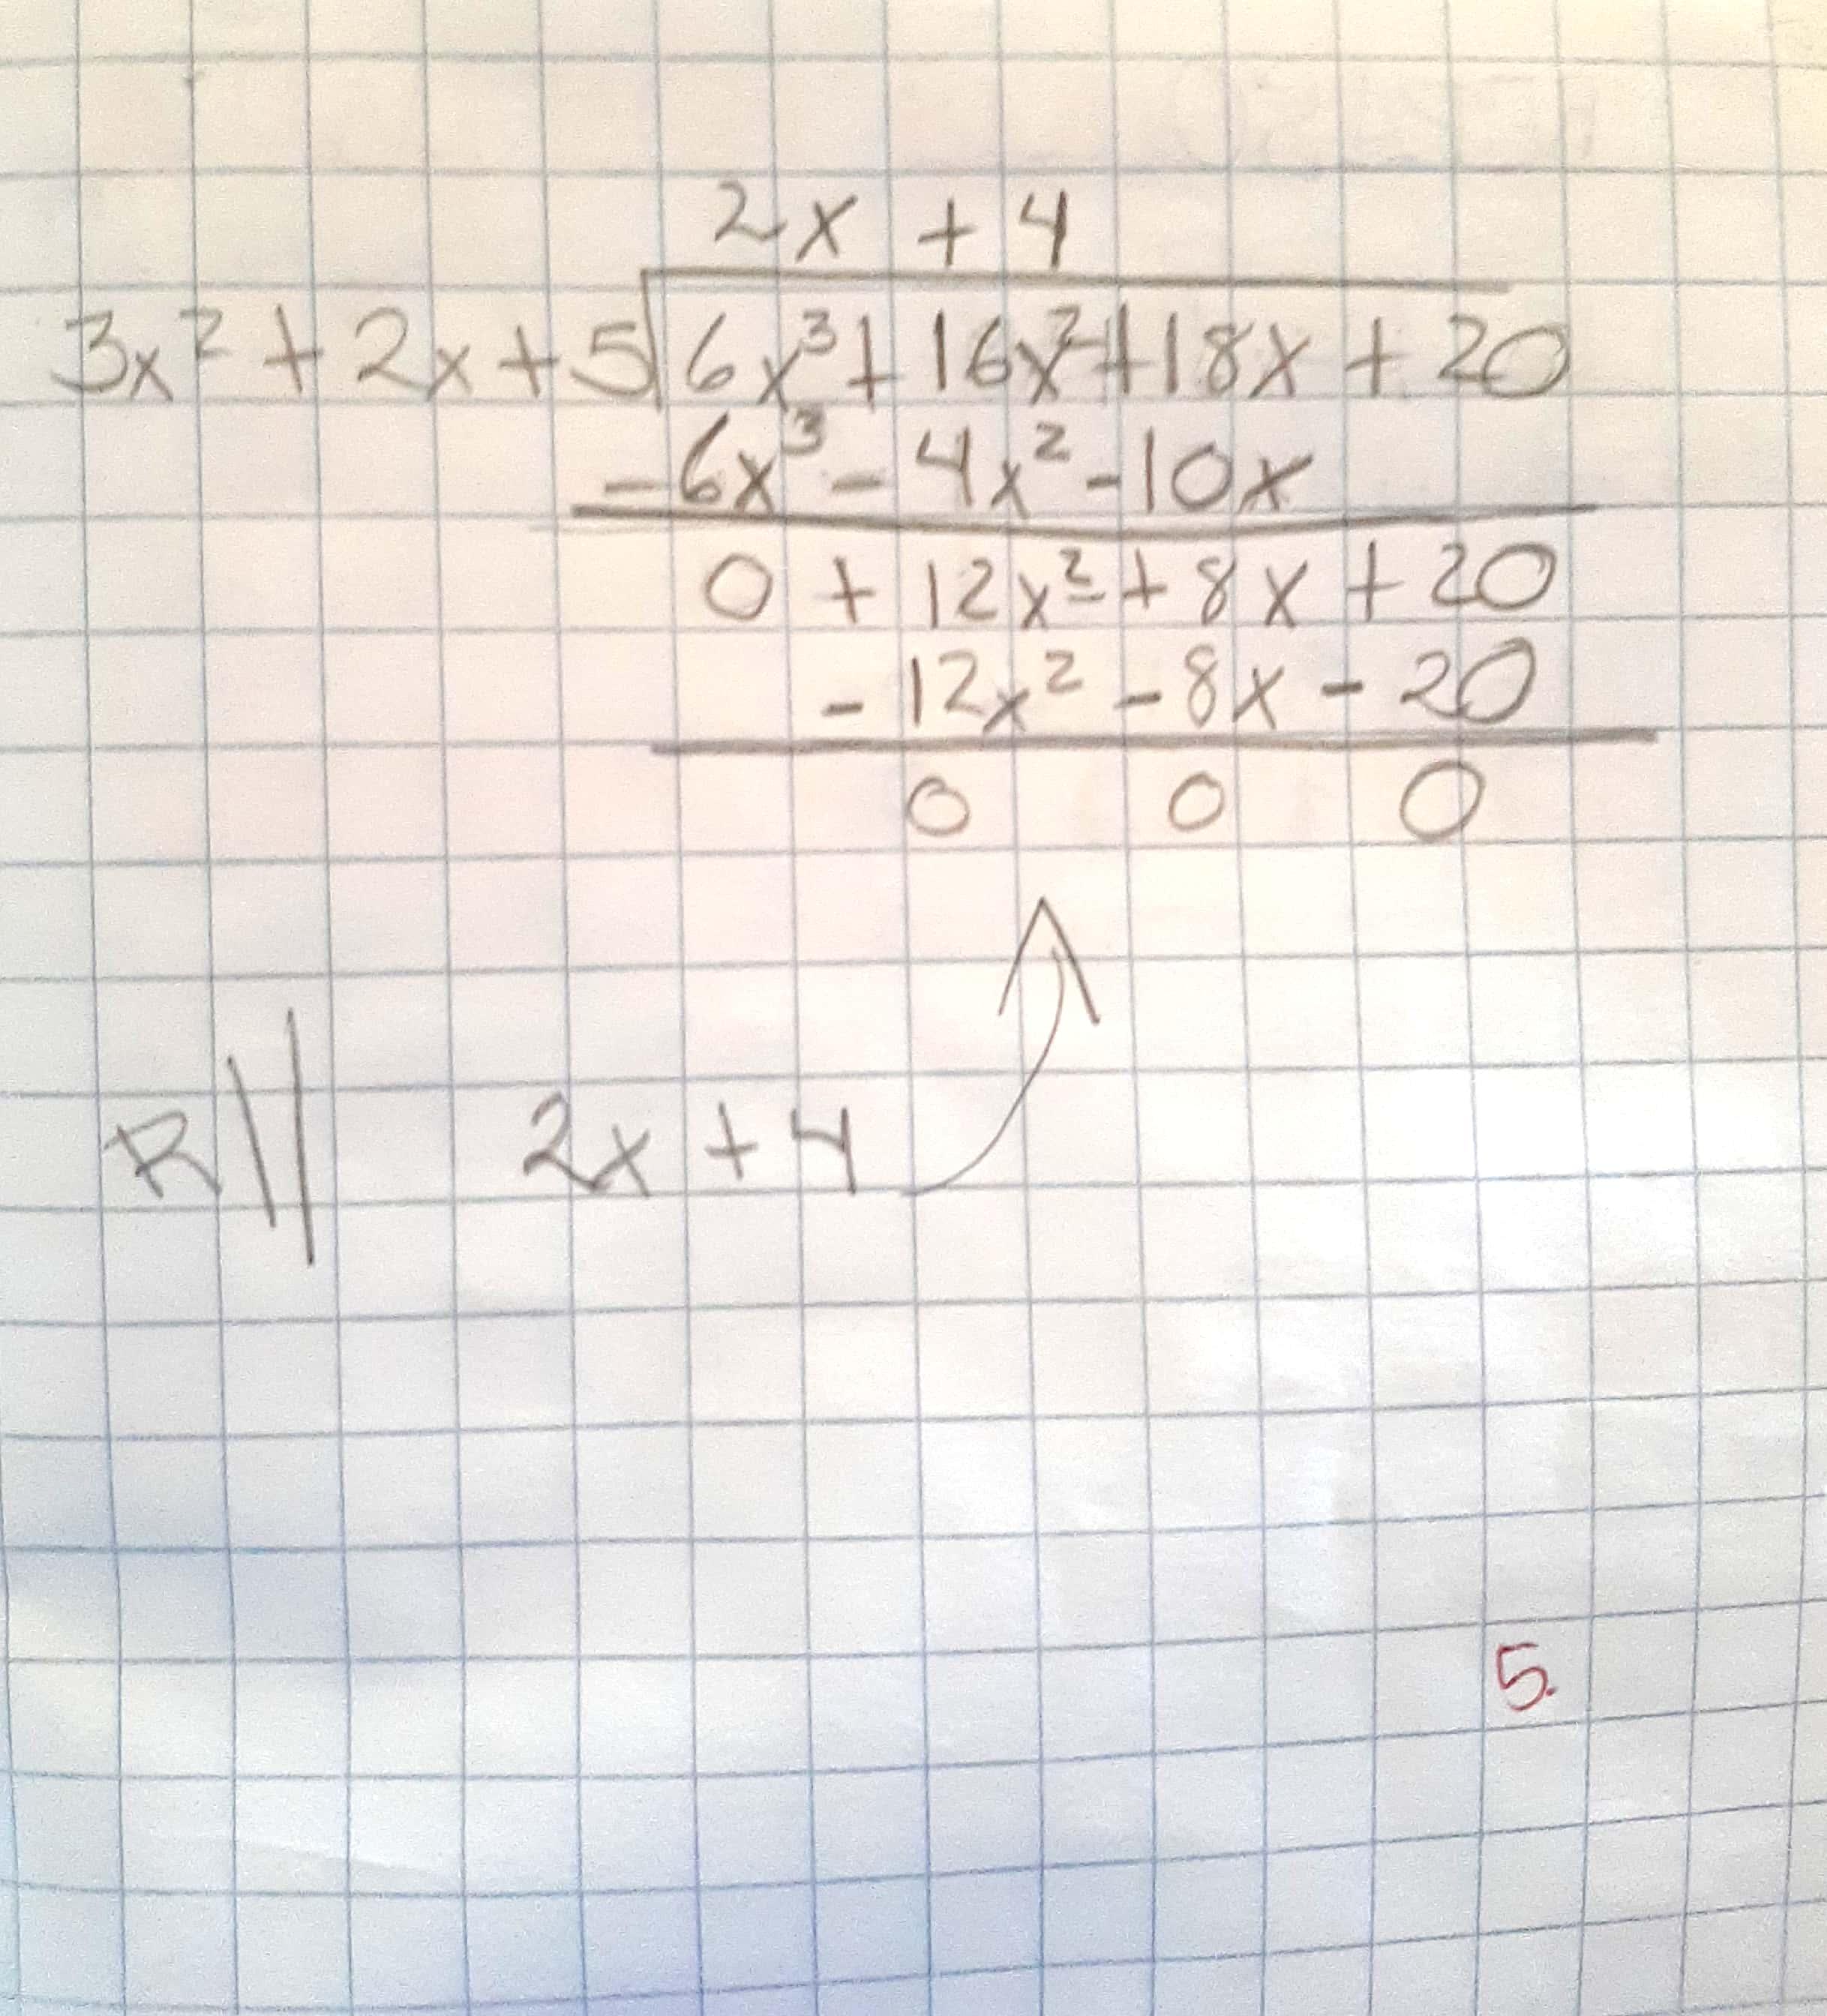 2x + 4
3x² + 2x + 5 6x³ + 16x² + 18x + 20
- 6x³ - 4x² - 10x
0 + 12x² + 8x + 20
- 12x² - 8x - 20
0 0 0
R// 2x + 4
5.